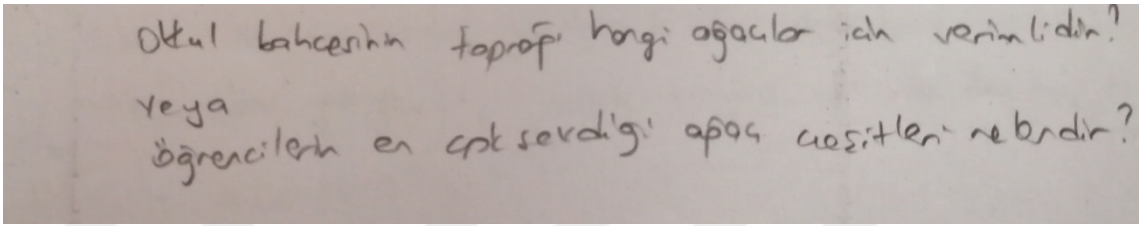 Okul bahçesinin toprağı hangi ağaçlar için verimlidir?
veya
öğrencilerin en çok sevdiği ağaç çeşitleri nelerdir?